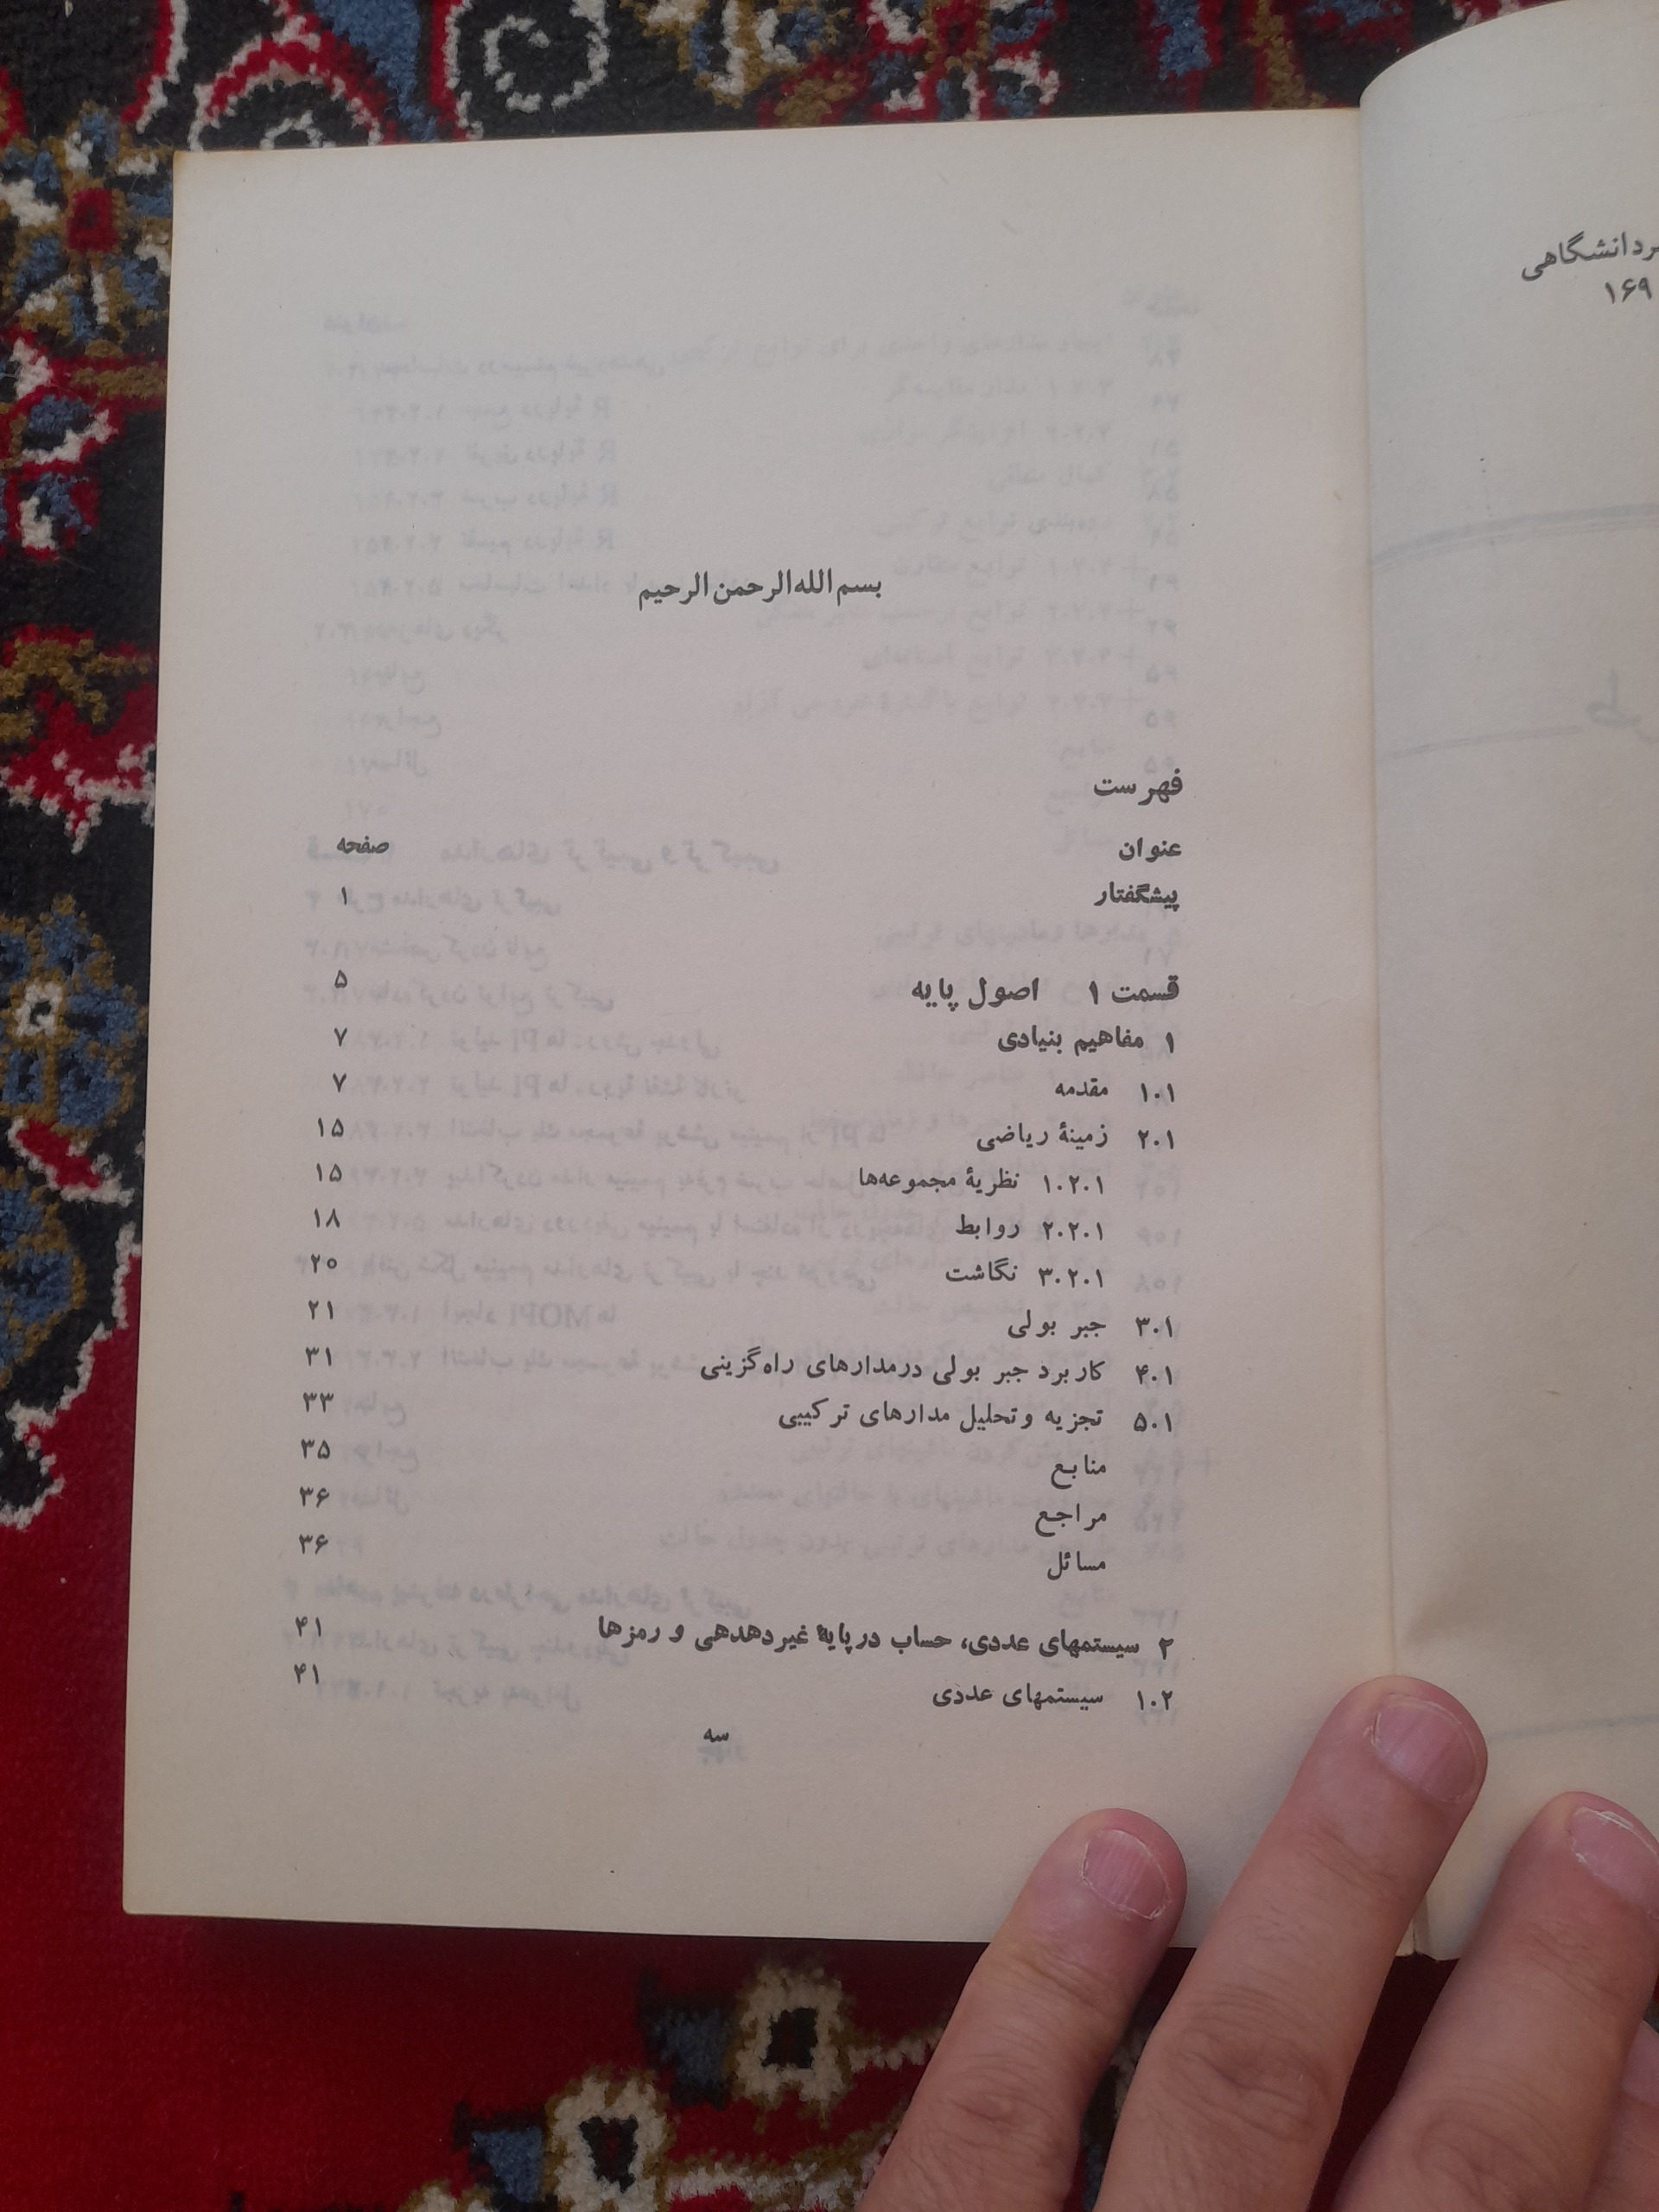 بسم الله الرحمن الرحیم
فهرست
عنوان صفحه
پیشگفتار ۱
قسمت ۱ اصول پایه ۵
۱ مفاهیم بنیادی ۷
۱.۱ مقدمه ۷
۲.۱ زمینهٔ ریاضی ۱۵
۱.۲.۱ نظریهٔ مجموعه‌ها ۱۵
۲.۲.۱ روابط ۱۸
۳.۲.۱ نگاشت ۲۰
۳.۱ جبر بولی ۲۱
۴.۱ کاربرد جبر بولی در مدارهای راه‌گزینی ۳۱
۵.۱ تجزیه و تحلیل مدارهای ترکیبی ۳۳
منابع ۳۵
مراجع ۳۶
مسائل ۳۶
۲ سیستمهای عددی، حساب در پایهٔ غیردهدهی و رمزها ۴۱
۱.۲ سیستمهای عددی ۴۱
سه
۱۶۹